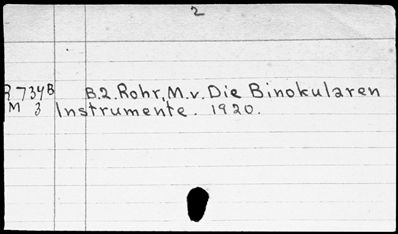 2
R734B B.2. Rohr, M.v. Die Binokularen
M 3 Instrumente. 1920.